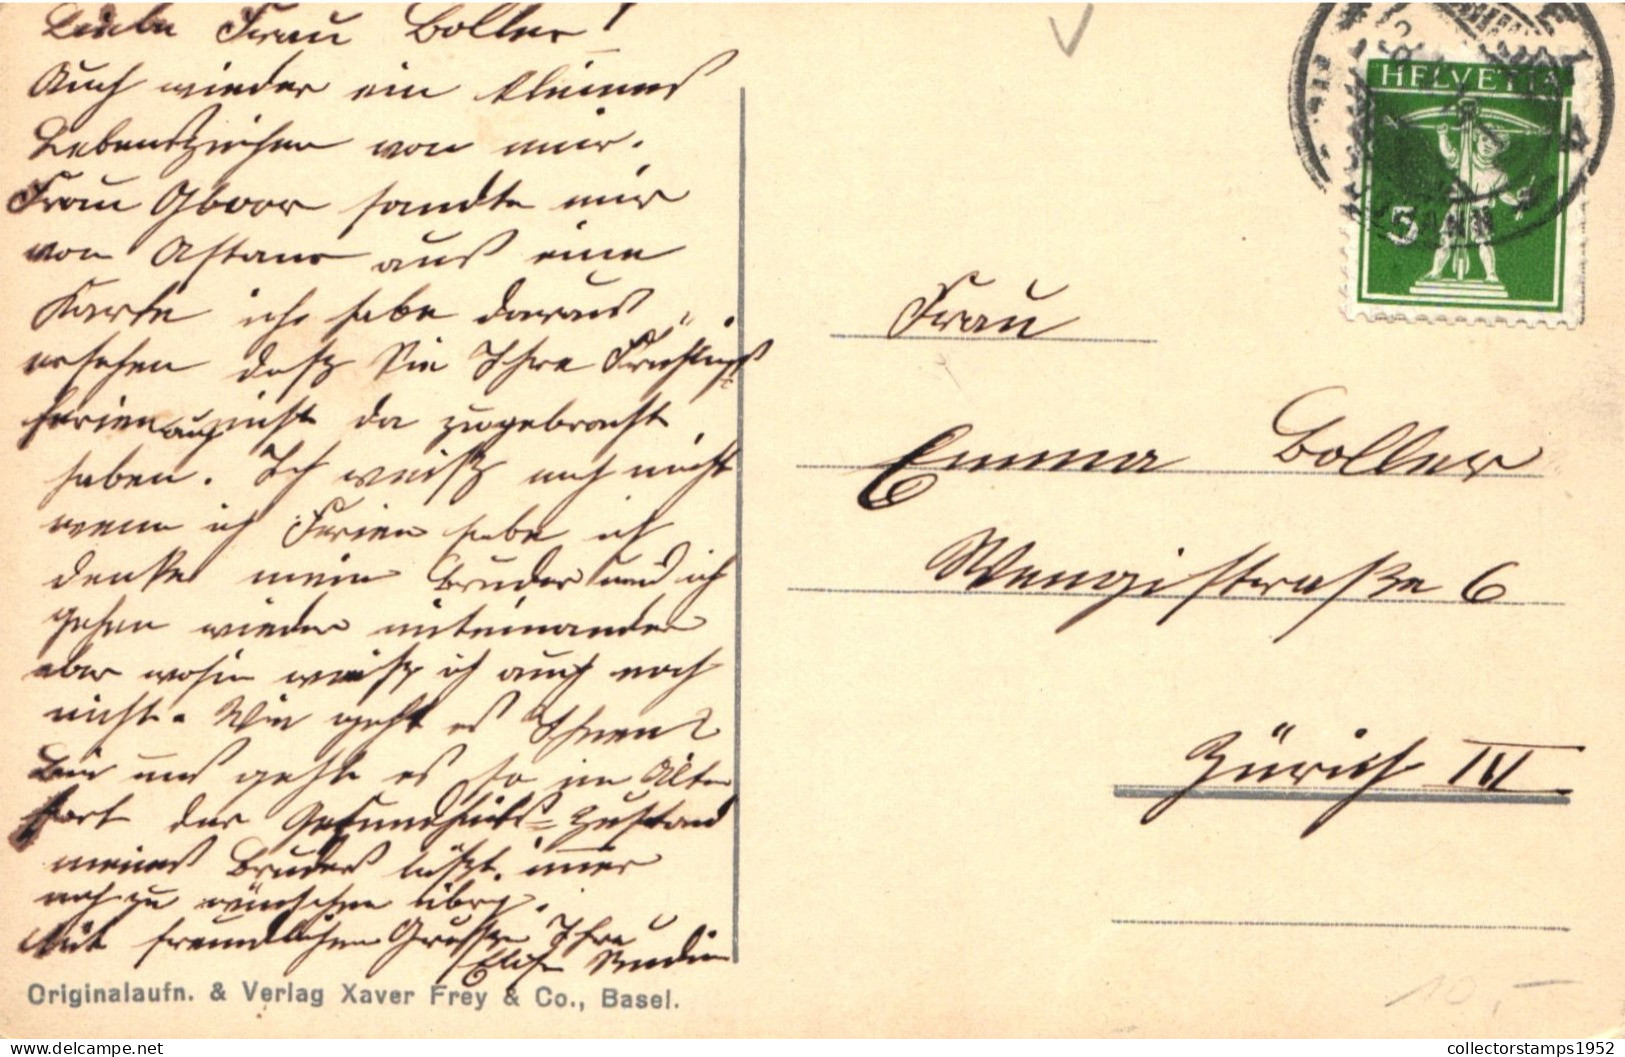 Liebe Frau Boller!
Auch wieder ein kleines
Lebenszeichen von mir.
Frau sandte mir
von Astano aus eine
Karte ich habe daraus
ersehen daß Sie Ihre Frühlings=
ferien auch nicht da zugebracht
haben. Ich weiß noch nicht
wenn ich Ferien habe ich
denke mein Bruder und ich
gehen wieder miteinander
aber wohin weiß ich auch noch
nicht. Wie geht es Ihnen?
Bei uns geht es so im Alten
fort der Gesundheits=Zustand
meines Bruders läßt immer
noch zu wünschen übrig.
Mit freundlichen Grüssen Ihre
Elise
Frau
Emma Boller
Wengistraße 6
Zürich IV
HELVETIA
5
Originalaufn. & Verlag Xaver Frey & Co., Basel.
10,-
collectorstamps1952